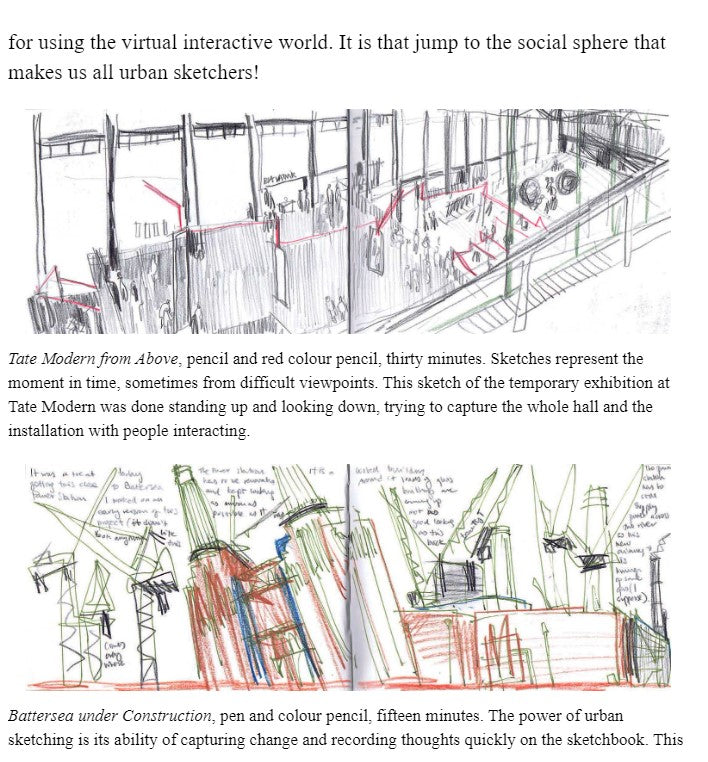 for using the virtual interactive world. It is that jump to the social sphere that
makes us all urban sketchers!
Tate Modern from Above, pencil and red colour pencil, thirty minutes. Sketches represent the
moment in time, sometimes from difficult viewpoints. This sketch of the temporary exhibition at
Tate Modern was done standing up and looking down, trying to capture the whole hall and the
installation with people interacting.
It was a treat
getting this close
to Battersea
today
I worked on an
early version of this
project (it didn't
look anything like
this)
The Power Station
it is a
and kept
possible
around it years
glass
buildings are
coming up
not so
good looking
so this
over
river
so this
new
Battersea under Construction, pen and colour pencil, fifteen minutes. The power of urban
sketching is its ability of capturing change and recording thoughts quickly on the sketchbook. This